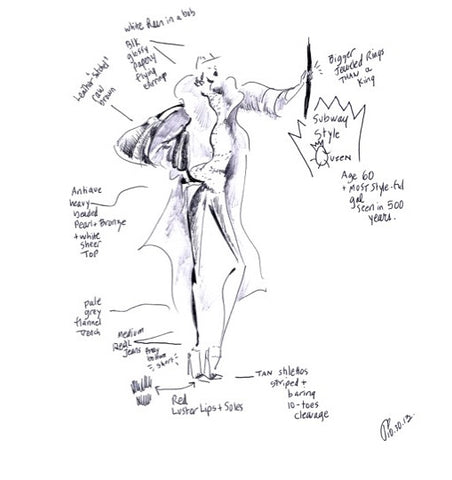 white
in a bob
Blk
glossy
flying
Leather "
raw
brown
Bigger
Jeweled Rings
THAN a
King
Subway
Style
Queen
Age 60
+ most style-ful
gal
seen in 500
years.
Antique
heavy
beaded
Pearl + Bronze
+ white
sheer
TOP
pale
grey
flannel
Trench
medium
Real
Jeans
TAN stilettos
striped +
baring
10-toes
cleavage
Red
Luster Lips + Soles
10.30.13